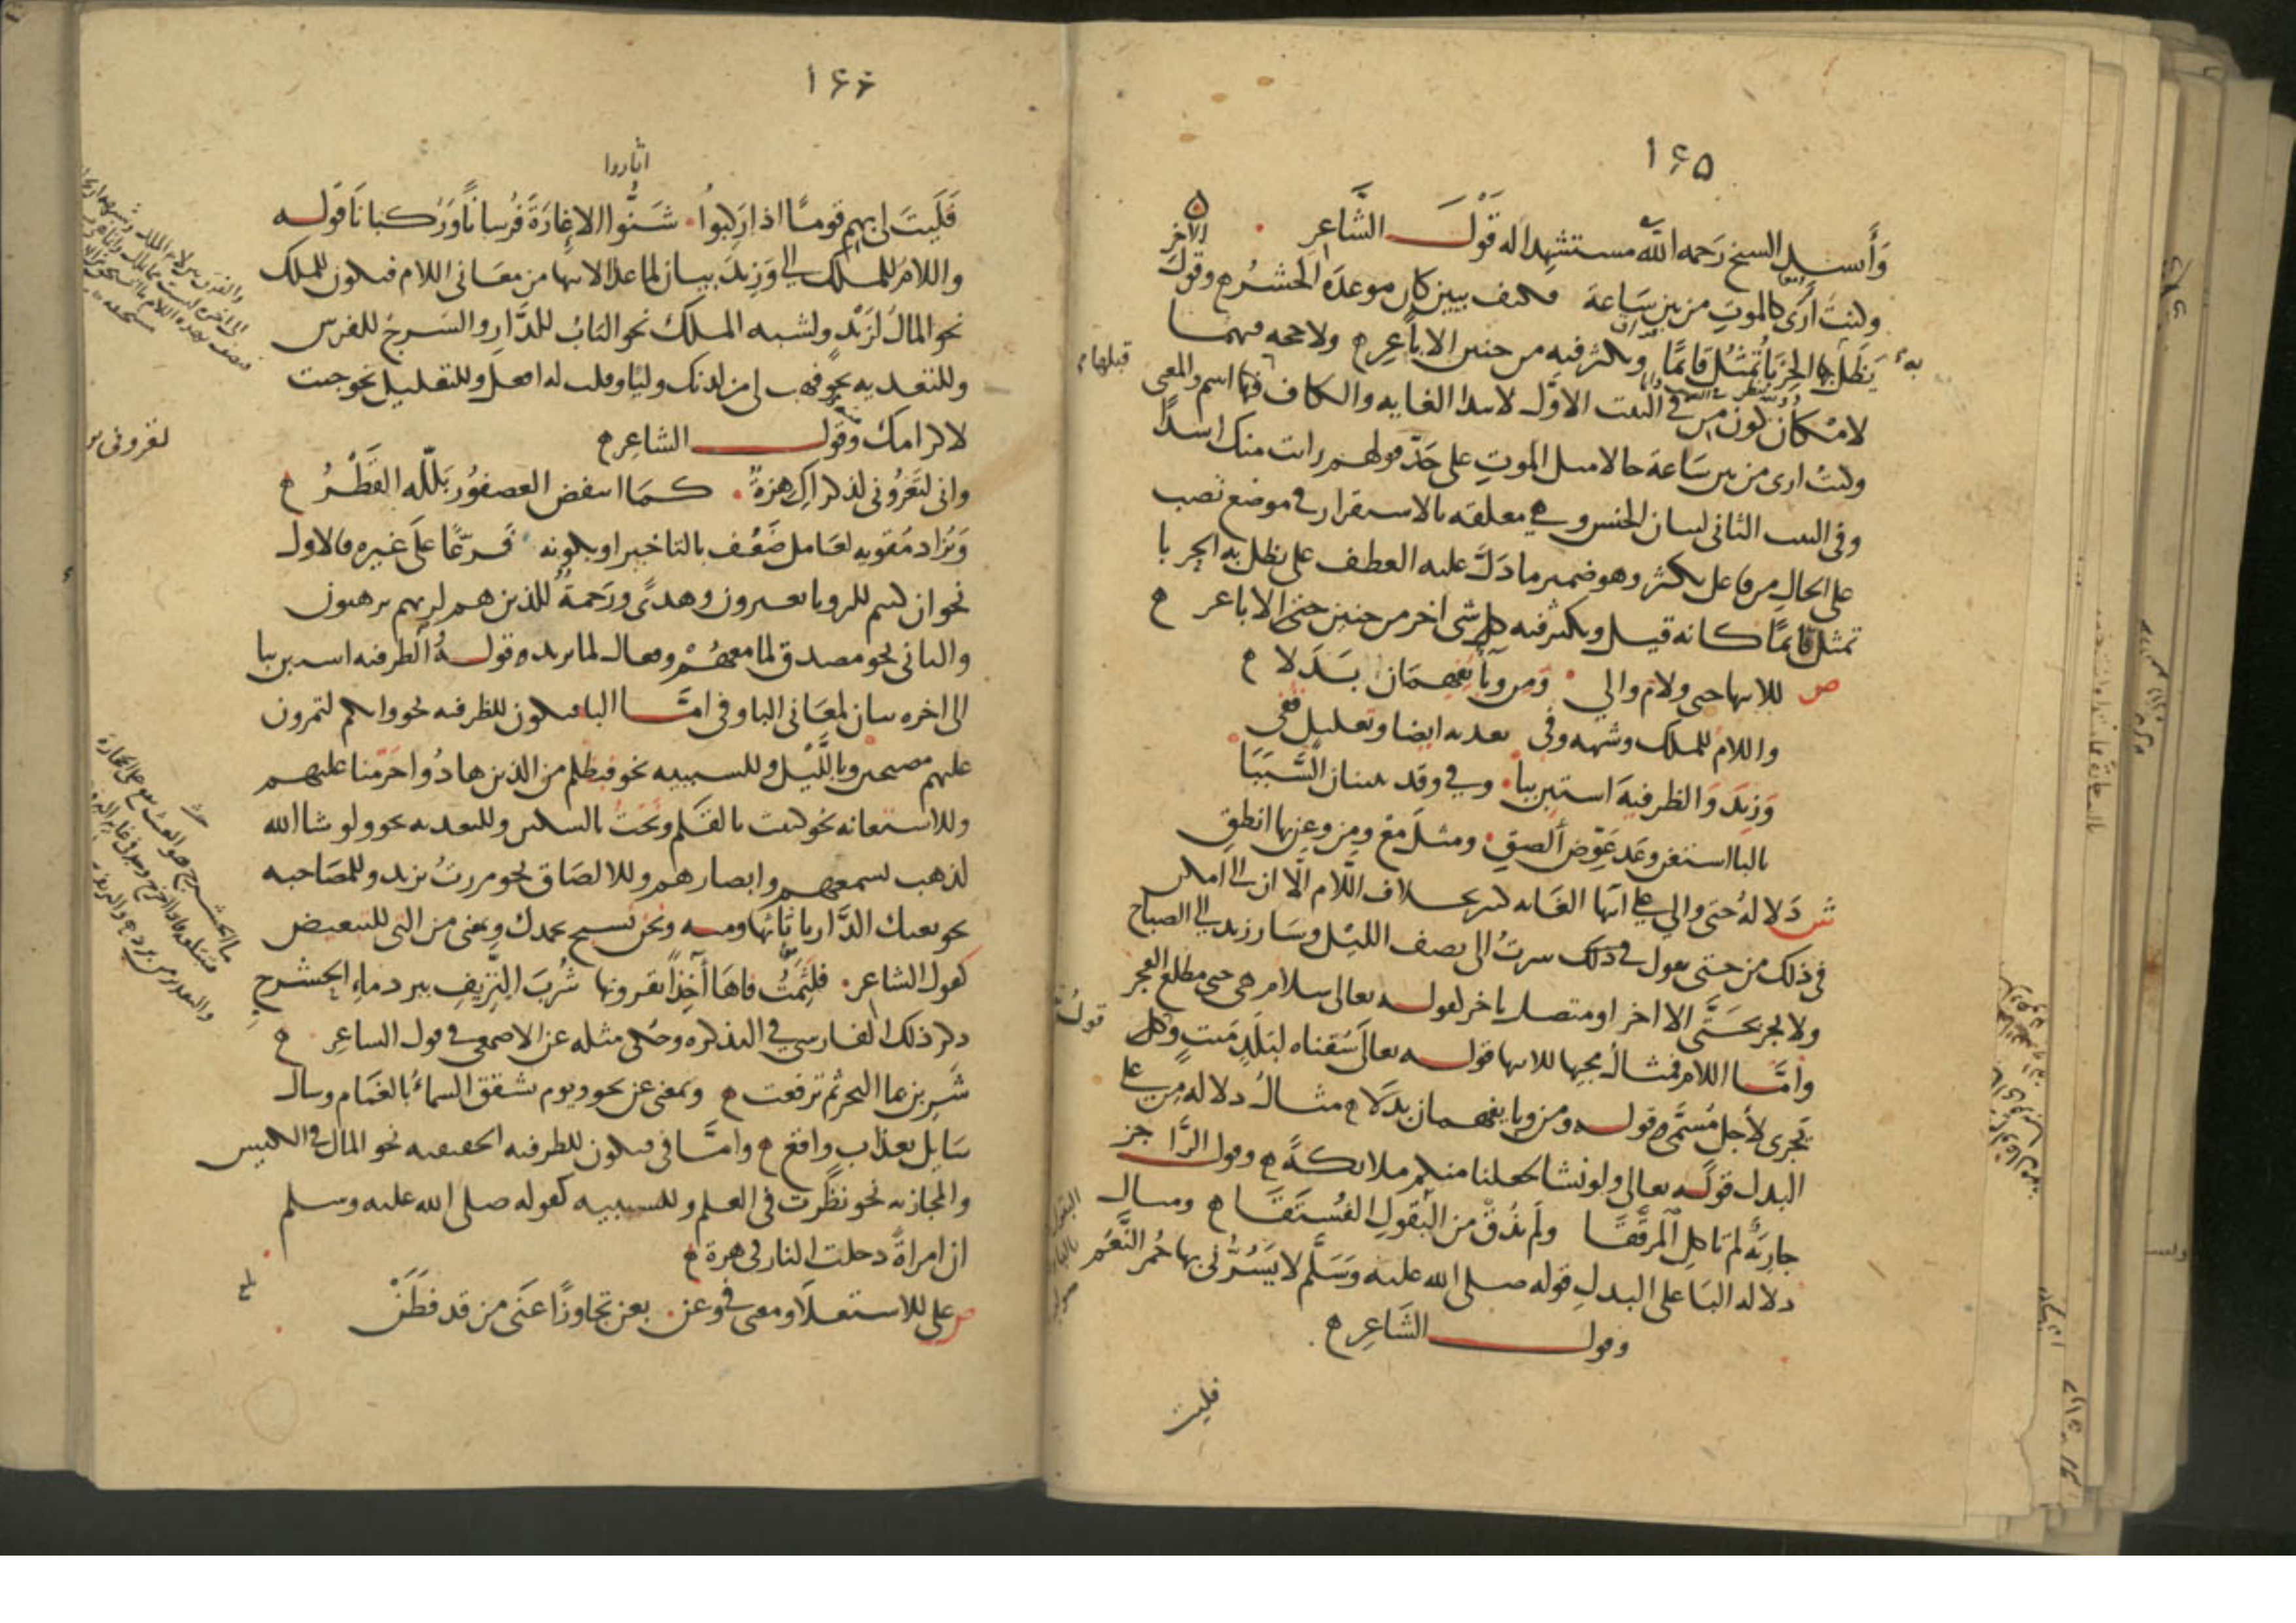 ١٦٥
وَأنشد الشيخ رَحمه الله مستشهدا له قَوْلَ الشَّاعِرِ
وكنتُ أرَى كالموتِ من بين سَاعة فكيف ببين كان موعدَه الحشرُ وقولَ الآخر
يَظَلُّ بها الحِربَا يُمَثَّلُ قَائِمًا ويكثر فيه من حنين الاباعِرِ ولا حجه فيهما
لامْكان كون من في البيت الاوَّل لابتدا الغايه والكاف قبلها اسم والمعنى
وكنتُ ارى من بين سَاعة حالا مثل الموتِ على حَدّ قولهم رايت منك اسدًا
وفي البيت الثاني لبيان الجنس وهي معلقه بالاستقرار في موضع نصب
على الحال من فاعل يكثر وهو ضمير ما دَلَّ عليه العطف على يظل به الحربا
تمثل قائمًا كانه قيل ويكثر فيه كل شي اخر من حنين حتى الاباعر
ص للانتها حتى ولام والي وَمِن وَبَا يُفهِمَان بَدَلا
واللامُ للملك وشبهه وفي تعديه ايضا وتعليل قفي
وَزِيدَ وَالظرفيهَ استبِن ببا وفي وقد يبينان السَّبَبَا
بالبا استعن وعَدِّ عَوِّض ألصقِ ومثلَ مَعْ ومِن وعن بها انطقِ
ش دَلالهُ حتى والي على انتها الغايه كثير بخلاف اللّام الّا ان الى امكن
في ذلك من حتى تقول في ذلك سرتُ الى نصف الليْل وسَار زيد الي الصباح
ولا تجر بحَتَّى الا اخر او متصل باخر كقوله تعالى سلام هي حتى مطلع الفجر
وامَّا اللام فمثالُ مجيها للانتها قوله تعالى سُقناه لبَلَدٍ مَيتٍ وكل
تَجرى لأجل مُسَمَّى قوله ومن وبا يفهمان بدَلا مثالُ دلاله مِن على
البدل قولُه تعالى ولو نشا لجعلنا منكم ملائكةً وقول الرَّاجز
جارية لم تاكلِ المرقَّقَا ولم تَذُقْ من البُقولِ الفُستَقَا ومثال
دلاله البَا على البدلِ قوله صلى الله عليه وَسَلَّم لا يَسُرُّني بها حُمر النَّعَم
وقول الشَاعِر
فليت
١٦٦
اثاروا
فَلَيتَ لي بهم قومًا اذا ركبوا شَنُّوا الاغارَةَ فُرسانًا وَرُكبانَا قوله
واللامُ للملك الي وَزِيدَ بيان لما عدا الانتها من معَاني اللام فتكون للملك
نحو المالُ لزَيْد ولشبه الملك نحو البابُ للدَّارِ والسَرج للفرس
وللتعديه نحو فهب لي من لدنك وليًا وقلت له افعل وللتعليل نحو جيت
لاكرامك وقول الشاعِر
واني لتَعْرُوني لذكراكِ هزةٌ كمَا انتفض العصفُور بَلّله القَطْرُ
وَتُزاد مُقويه لعَامل ضَعُف بالتاخير او بكونه فَرعًا على غيره فالاول
نحو ان كنتم للرويا تعبرون وهدىً ورَحمةٌ للذين هم لربهم يرهبون
والثاني نحو مصدق لما معهُمْ وفعال لما يريد قوله والظرفيه استبن ببا
الى اخره بيان لمعَاني البا وفي امَّا البا فتكون للظرفيه نحو وانكم لتمرون
عليهم مصبحين وبالَّليْل وللسببيه نحو فبظلم من الذين هادُوا حَرَّمنا عليهم
وللاستعانه نحو كتبت بالقَلَم ونَحتُّ بالسكين وللتعديه نحو ولو شا الله
لذهب بسمعهم وابصارهم وللالصَاق نحو مررتُ بزيد وللمصَاحبه
نحو بعتك الدَّار باثاثها ومنه ونحن نسبح بحمدك وبمعنى من التي للتبعيض
كقول الشاعر فلثمتُ فاها آخِذًا بقرونها شُربَ النزيف ببرد ماءِ الحشرجِ
ذكر ذلك الفارسي في التذكره وحُكى مثله عن الاصمعي في قول الشاعِر
شَرِبن بما البحر ثم ترفعت وبمعنى عن نحو ويوم تشقق السماءُ بالغمام وسال
سَايل بعذاب واقعٍ وامَّا في فتكون للظرفيه الحقيقيه نحو المال في الكيس
والمجازيه نحو نظَرت في العلم وللسببيه كقوله صلى الله عليه وسلم
ان امراةً دخلت النار في هرة
ص على للاستعلَا ومعنى في وعن بعن تجاوزًا عَنَى مَن قد فَطَنْ